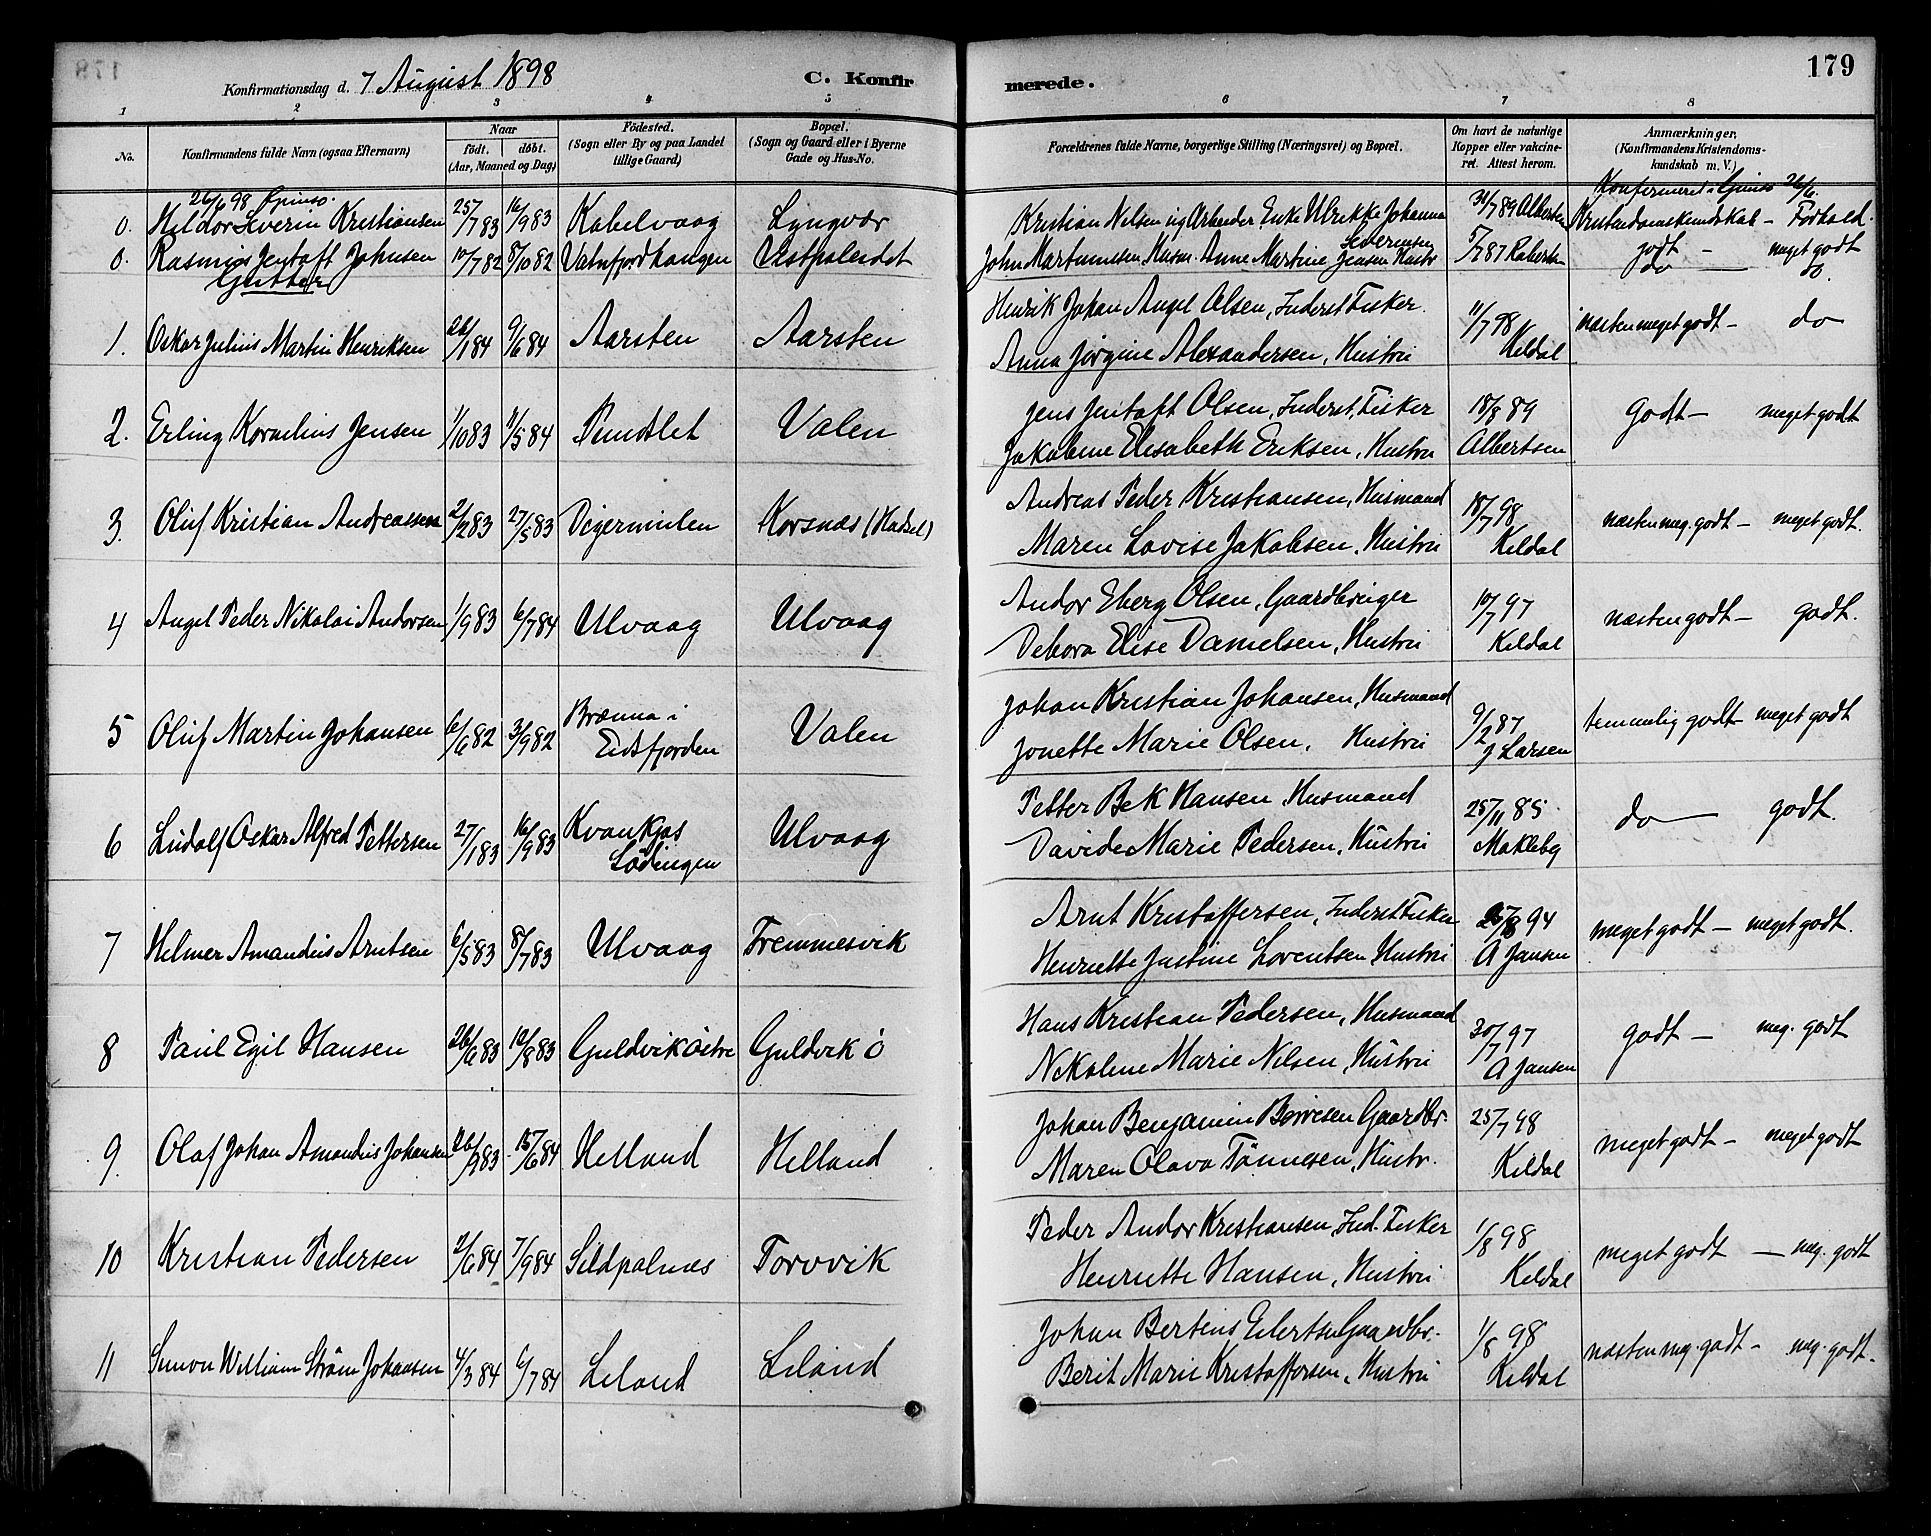 Konfirmationsdag d. 7 August 1898
C. Konfirmerede.
179
1 2 3 4 5 6 7 8
No.
Konfirmandens fulde Navn (ogsaa Efternavn)
Naar
födt. döbt.
(Aar, Maaned og Dag)
Födested.
(Sogn eller By og paa Landet
tillige Gaard)
Bopæl.
(Sogn og Gaard eller i Byerne
Gade og Hus-No.
Forældrenes fulde Navne, borgerlige Stilling (Næringsvei) og Bopæl.
Om havt de naturlige
Kopper eller vakcine-
ret. Attest herom.
Anmærkninger.
(Konfirmandens Kristendoms-
kundskab m. V.)
26/6 98 Gimsö.
Konfirmeret i Gimsö 26/6.
0. Hildor Severin Kristiansen 25/7 83 16/9 83 Kabelvaag Lyngvær Kristian Nilsen ug Arbeider, Enke Ulrikke Johanna Severinsen 31/7 89 Albertsen Kristendomskundskab – Forhold.
godt – meget godt
0. Rasmus Jentoft Johnsen 10/7 82 8/10 82 Vatnfjordhaugen Vestpolendet John Martinussen, Husm. Anne Martine Jensen Hustr 5/7 87 Robertsen do do.
Gutter
1. Oskar Julius Martin Henriksen 26/1 84 9/6 84 Aarsten Aarsten Henrik Johan Angel Olsen, Inderst, Fisker.
Anna Jörgine Alexandersen, Hustru 11/7 98 Kildal næsten meget godt – do
2. Erling Kornelius Jensen 1/10 83 11/5 84 Pundslet Valen Jens Jentoft Olsen, Inderst, Fisker
Jakobine Elisabeth Eriksen, Hustru 18/8 89 Albertsen Godt – meget godt
3. Oluf Kristian Andreassen 2/2 83 27/5 83 Digermulen Korsnæs (Hadsel) Andreas Peder Kristiansen, Husmand
Maren Lovise Jakobsen, Hustru 18/7 98 Kildal næsten meg. godt – meget godt.
4 Angel Peder Nikolai Andorsen 1/9 83 6/7 84 Ulvaag Ulvaag Andor Eberg Olsen, Gaardbruger
Debora Elise Danielsen, Hustru 10/7 97 Kildal næsten godt – godt.
5 Oluf Martin Johansen 6/6 82 3/9 82 Brænna i
Eidsfjorden Valen Johan Kristian Johansen, Husmand
Jonette Marie Olsen, Hustru 9/2 87 J Larsen temmelig godt – meget godt
6 Ludolf Oskar Alfred Pettersen 27/1 83 16/9 83 Kvankjos
Lödingen Ulvaag Petter Bek Hansen, Husmand
Davide Marie Pedersen, Hustru 25/11 85 Maklebg do godt.
7 Helmer Amandus Arntsen 6/5 83 8/7 83 Ulvaag Tremmesvik Arnt Kristoffersen, Inderst Fisker
Henriette Justine Lorentsen, Hustru 25/8 94 A Jansen meget godt – meget godt.
8 Paul Egil Hansen 26/6 83 12/8 83 Guldvik östre Guldvik ö Hans Kristian Pedersen, Husmand
Nikoline Marie Nilsen, Hustru 30/7 97 A Jansen godt – meg. godt
9. Olaf Johan Amandus Johansen 26/9 83 15/6 84 Helland Helland Johan Benjamin Börresen Gaardbr.
Maren Olava Tönnesen, Hustr. 25/7 98 Kildal meget godt – meget godt
10 Kristian Pedersen 2/6 84 7/9 84 Sildpolnæs Torvvik Peder Andor Kristiansen, Ind. Fisker
Henriette Hansen, Hustru 1/8 98 Kildal meget godt – meg. godt
11 Simon William Ström Johansen 4/3 84 6/7 84 Liland Liland Johan Bertius Eilertsen Gaardbr.
Berit Marie Kristoffersen, Hustru 1/8 98 Kildal næsten meg. godt – meg. godt.